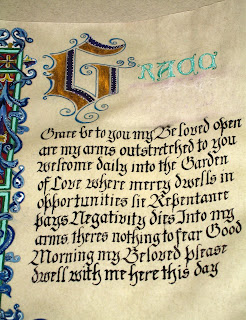 G
Grace be to you my Beloved open
are my arms outstretched to you
Welcome daily into the Garden
of Love where mercy dwells in
opportunities lie Repentance
pays Negativity dies Into my
arms theres nothing to fear Good
Morning my Beloved please
dwell with me here this day